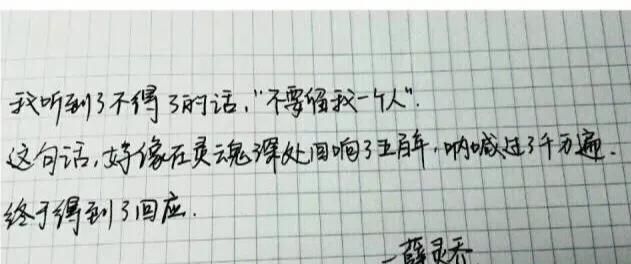 我听到了不得了的话,"不要留我一个人".
这句话,好像在灵魂深处回响了五百年,呐喊过了千万遍.
终于得到了回应.
—薛灵乔